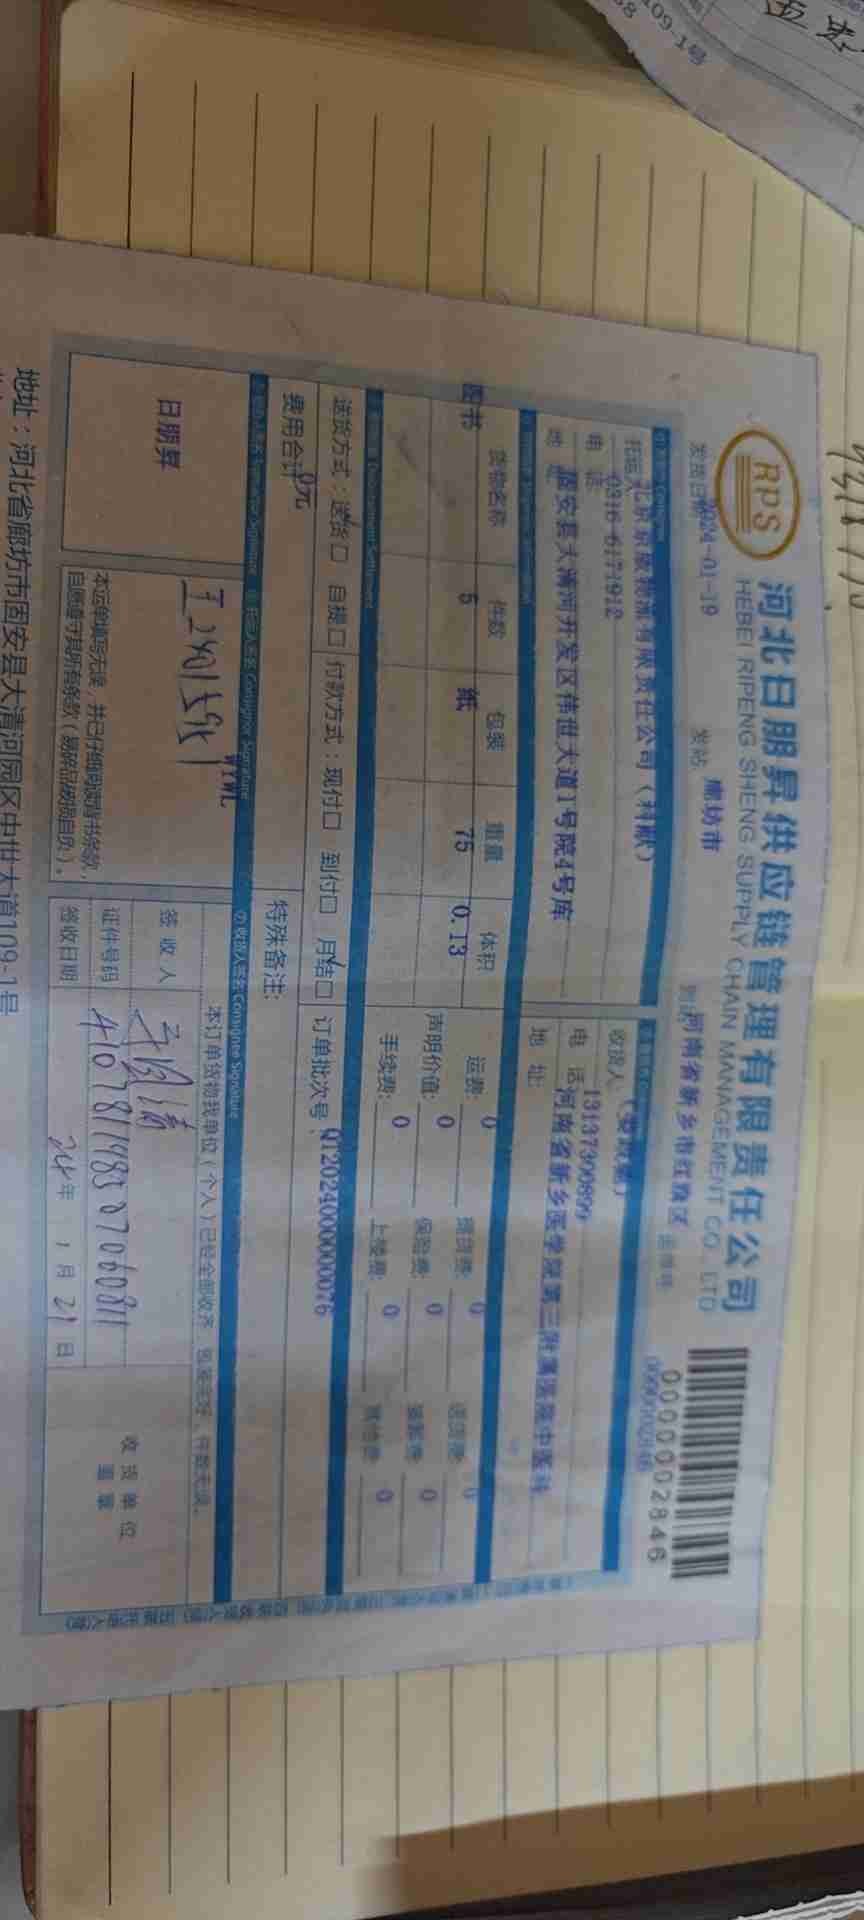 RPS
河北日朋昇供应链管理有限责任公司
HEBEI RIPENG SHENG SUPPLY CHAIN MANAGEMENT CO. LTD
00000002846
发货日期 2024-01-19
发站: 廊坊市
河南省新乡市红旗区
0000002846
托运人
北京京版物流有限责任公司(科献)
电 话: 0316-6171912
地 址: 固安县大清河开发区伟世大道1号院4号库
收货人:
电 话: 13137300899
地 址: 河南省新乡医学院第三附属医院中医科
货物名称 件数 包装 重量 体积
图书 5 纸 75 0.13
运费: 0 提货费: 0 送货费: 0
声明价值: 0 保险费: 0 装卸费: 0
手续费: 0 上楼费: 0 其他费: 0
送货方式: 送货□ 自提□ 付款方式: 现付□ 到付□ 月结□ 订单批次号: QT202400000076
费用合计 0元
特殊备注:
托运人签名 Consignor Signature
⑦收货人签名 Consignee Signature
日朋昇
WYWL
本运单填写无误,并已仔细阅读背书条款,
自愿遵守其所有条款(易碎品破损自负)。
本订单货物我单位(个人)已经全部收齐,包装完好,件数无误。
签 收 人
证件号码
签收日期 24年 1月 21日
收货单位
盖章
地址:河北省廊坊市固安县大清河园区中世大道109-1号
109-1号